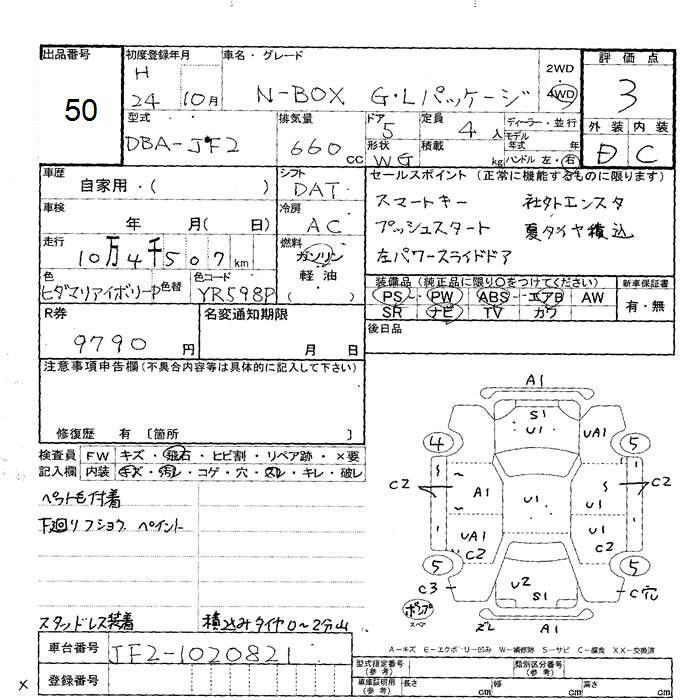 出品番号
50
初度登録年月
H
24 10月
車名・グレード
N-BOX G・Lパッケージ
2WD
4WD
評価点
3
外装 内装
D C
型式
DBA-JF2
排気量
660 cc
ドア
5
形状
WG
定員
4 人
積載
kg
ディーラー・並行
モデル
年式 年
ハンドル 左・右
車歴
自家用・( )
シフト
DAT
セールスポイント (正常に機能するものに限ります)
スマートキー 社外エンスタ
プッシュスタート 夏タイヤ積込
左パワースライドドア
車検
年 月( 日)
冷房
AC
走行
10万4千507 km
燃料
ガソリン
軽油
( )
色
ヒダマリアイボリーP
色替
色コード
YR598P
装備品 (純正品に限り○をつけてください)
PS・PW・ABS・エアB・AW
SR ナビ TV カワ
新車保証書
有・無
R券
9790 円
名変通知期限
月 日
後日品
注意事項申告欄(不具合内容等は具体的に記入して下さい)
修復歴 有 〔箇所 〕
検査員 FW キズ・飛石・ヒビ割・リペア跡・×要
記入欄 内装 キズ・汚レ・コゲ・穴・スレ・キレ・破レ
ペット毛付着
下廻りフショク ペイント
スタッドレス装着 積込みタイヤ0~2分山
A1
S1
U1
UA1
4
5
C2
A1
U1
C2
UA1
C2
A1
C2
5
5
C3
U2
S1
C穴
ズレ
A1
A-キズ E-エクボ U-凹み W-補修跡 S-サビ C-腐食 XX-交換済
車台番号
JF2-1020821
登録番号
型式指定番号
(参考)
類別区分番号
(参考)
車庫証明用
(参考)
長さ cm 幅 cm 高さ cm
x